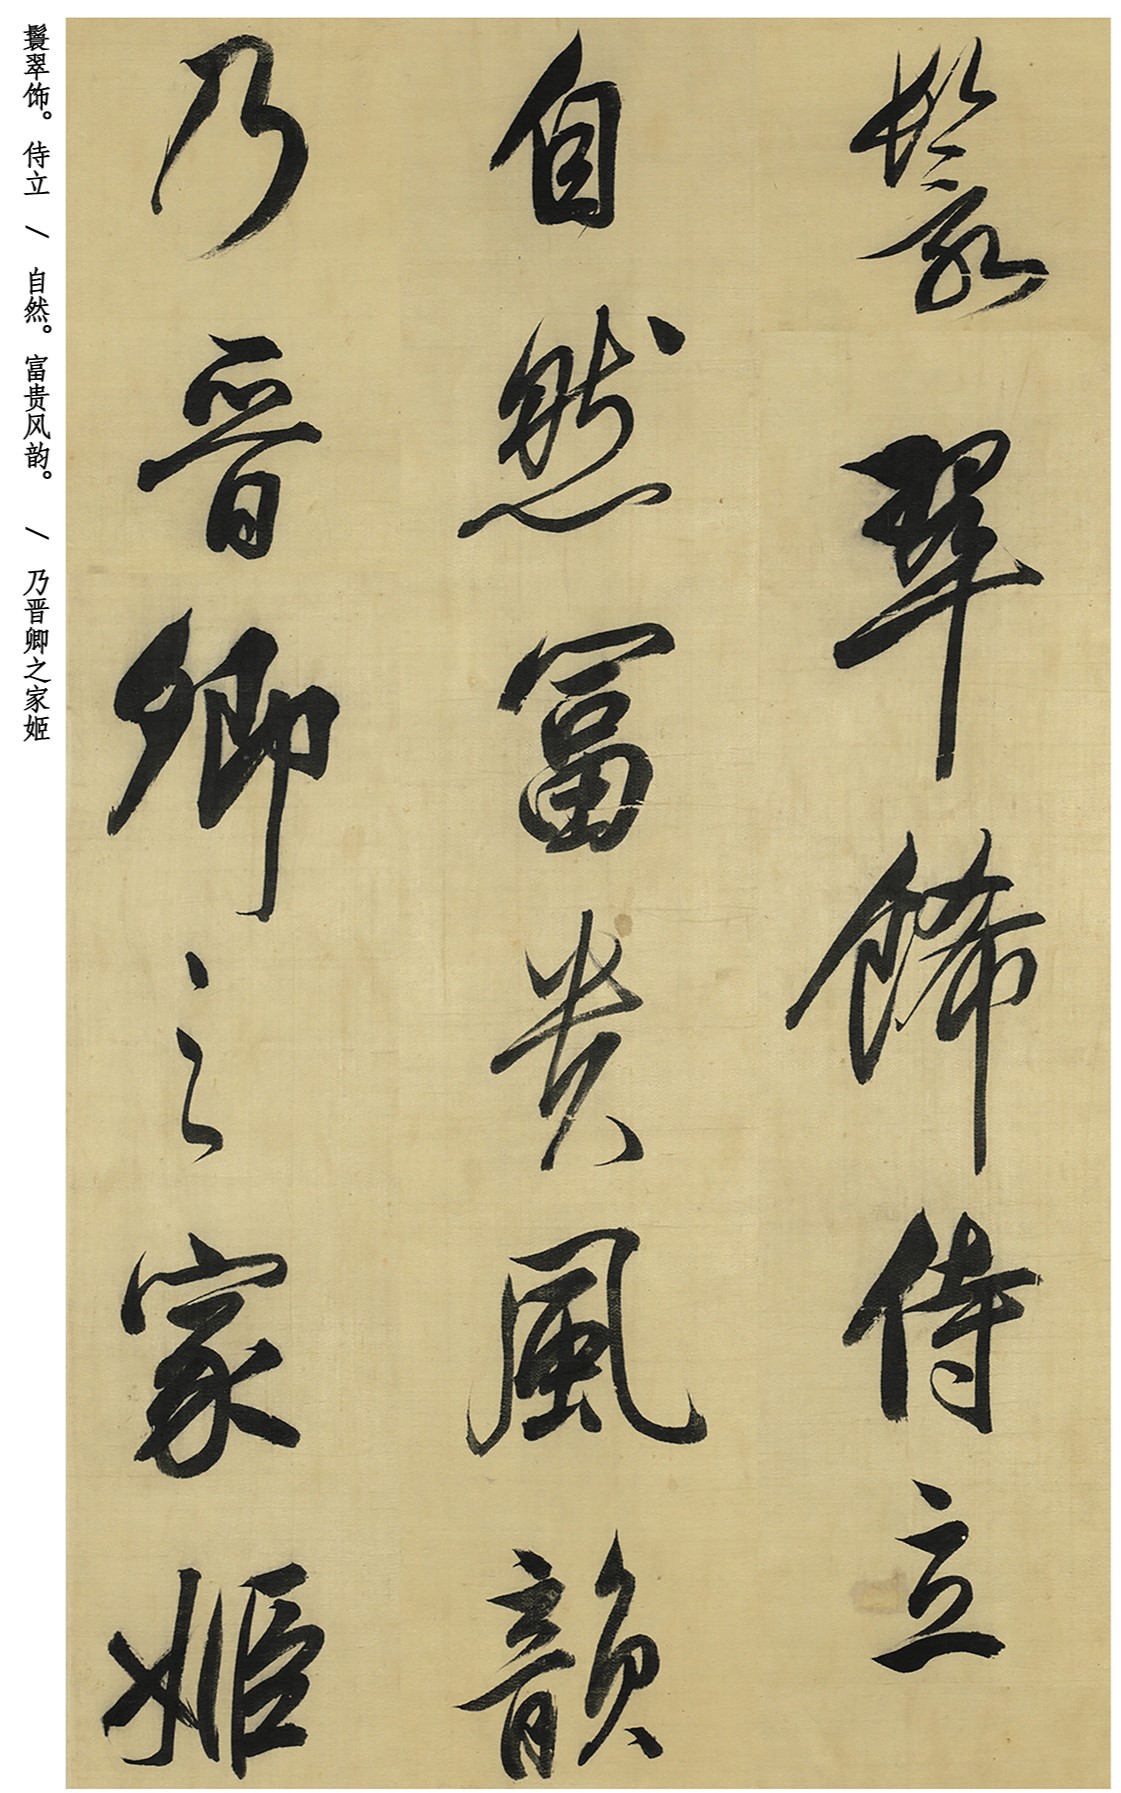 鬟翠飾侍立
自然富貴風韻
乃晉卿之家姬
鬟翠饰。侍立 / 自然。富贵风韵。 / 乃晋卿之家姬